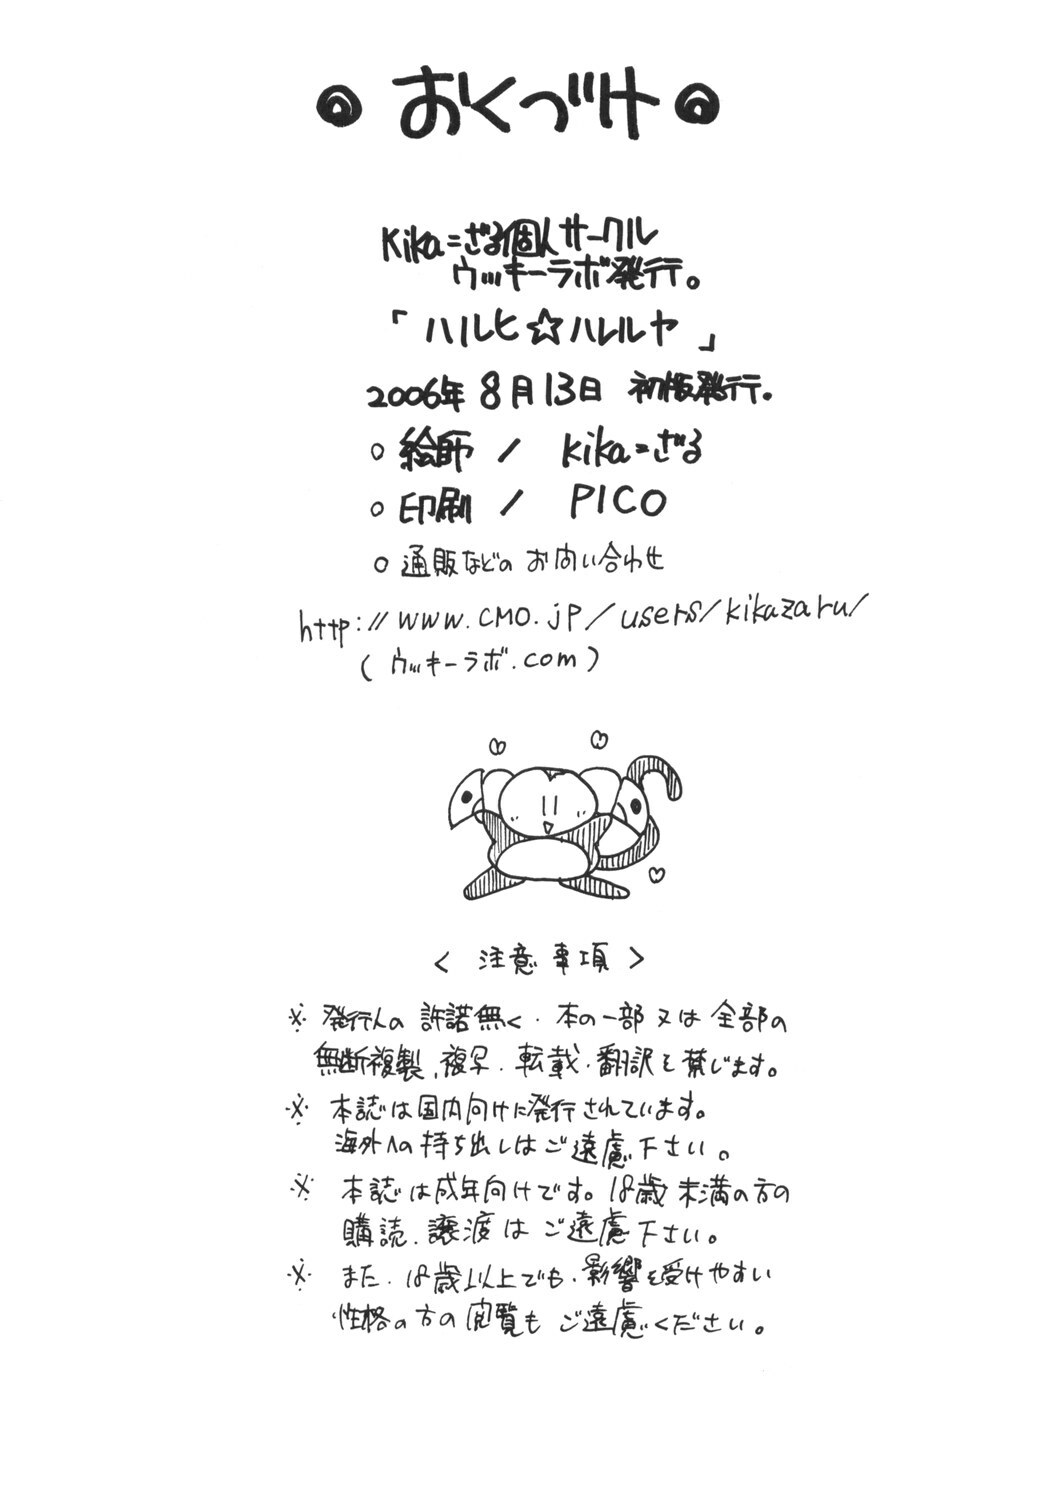 おくづけ
Kika=ざる個人サークル
ウッキーラボ発行。
「ハルヒ☆ハレルヤ」
2006年8月13日 初版発行。
○ 絵師 / kika=ざる
○ 印刷 / PICO
○ 通販などの お問い合わせ
http://www.cmo.jp/users/kikazaru/
(ウッキーラボ.com)
< 注意事項 >
※ 発行人の許諾無く・本の一部又は全部の
無断複製、複写・転載・翻訳を禁じます。
※ 本誌は国内向けに発行されています。
海外への持ち出しはご遠慮下さい。
※ 本誌は成年向けです。18歳未満の方の
購読、譲渡はご遠慮下さい。
※ また・18歳以上でも・影響を受けやすい
性格の方の閲覧もご遠慮ください。